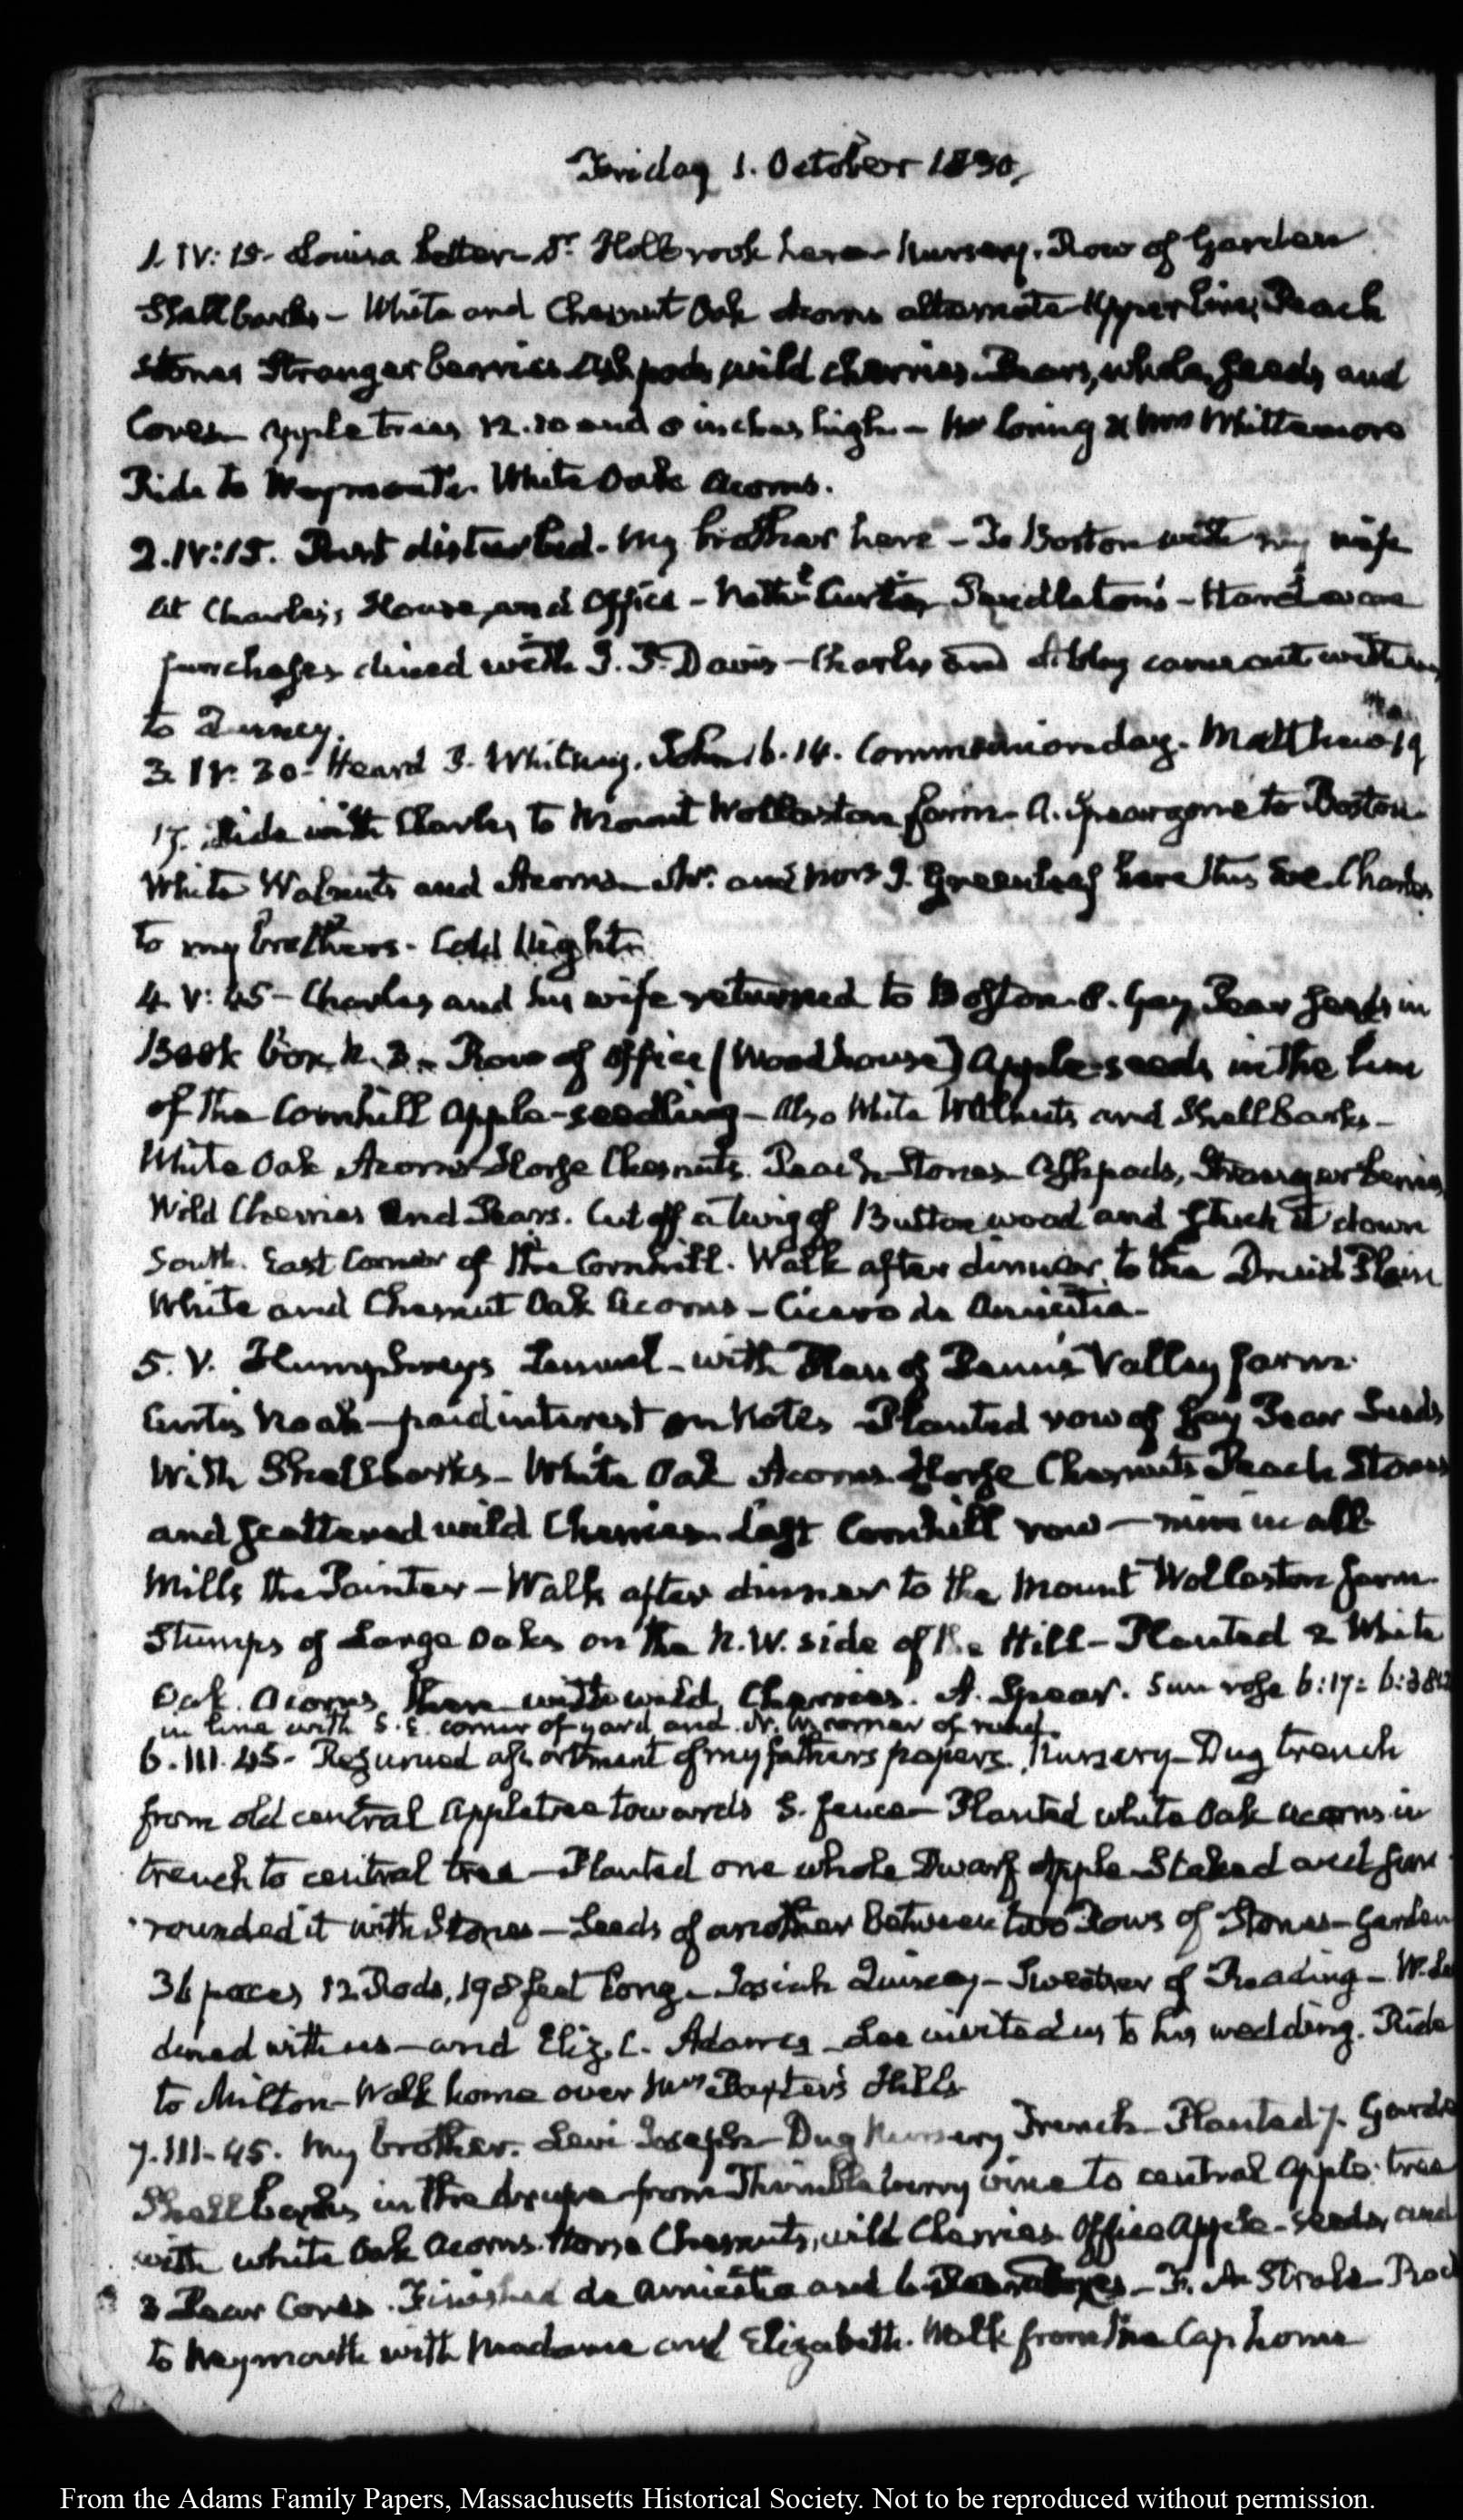 Friday 1. October 1830.
1. IV: 15. Louisa better Dr. Holbrook here - Nursery. Row of Garden
Shellbarks - White and Chesnut Oak Acorns alternate Upper line, Peach
Stones Stranger berries Ash pods, wild cherries. Pears, whole, Seeds, and
Cores apple trees 12. 10 and 8 inches high - Mr Loring & Mrs Whittemore
Ride to Weymouth. White Oak Acorns.
2. IV: 15. Rest disturbed. My brother here - To Boston with my wife
at Charles's House, and Office - Curtis, - Hardware
purchases dined with I. P. Davis - Charles and Abby came out with us
to Quincy.
3. IV. 30 - Heard G. Whitney. John 16. 14. Communion day. Matthew 19
17. Ride with Charles to Mount Wollaston farm - A. Spear gone to Boston
White Walnuts and Acorns Mr. and Mrs D. Greenleaf here this Eve. Charles
to my brothers. Cold Night
4. V: 45 - Charles and his wife returned to Boston. Gay Pear Seeds in
Book box. N. 3. Row of Office (Woodhouse) Apple-seeds in the line
of the Cornhill apple-seedling - Also White Walnuts and Shellbarks -
White Oak Acorns Horse Chesnuts. Peach Stones Ash pods, Stranger berries
Wild Cherries and Pears. Cut off a twig of Buttonwood and Stuck it down
South. East Corner of the Cornhill. Walk after dinner, to the Druid Plain
White and Chesnut Oak Acorns - Cicero de Amicitia -
5. V. Humphreys Lemuel - with Plan of Penn's Valley farm.
Curtis Noah - paid interest on Notes Planted row of Gay Pear Seeds
With Shellbarks - White Oak Acorns. Horse Chesnuts Peach Stones
and scattered wild Cherries. Last Cornhill row - nine in all
Mills the Painter - Walk after dinner to the Mount Wollaston farm.
Stumps of Large Oaks on the N.W. side of the Hill - Planted 2 White
Oak. Acorns, there with wild, Cherries. A. Spear. Sun rose 6:17:
in line with S. E. corner of yard and N. W. corner of
6. III. 45 - Resumed assortment of my fathers papers. Nursery - Dug trench
from old central Appletree towards S. fence - Planted white Oak acorns in
trench to central tree - Planted one whole Dwarf Apple Staked and sur
rounded it with Stones - Seeds of another between two Rows of Stones - Garden
36 paces 12 Rods, 198 feet long - Josiah Quincy - Swether of Reading - W. Lee
dined with us - and Eliz. C. Adams - Lee invited us to his wedding. Ride
to Milton - Walk home over Mrs Baxter's Hills
7. III. 45. My brother. Levi Joseph - Dug Nursery Trench - Planted 7. Garden
Shellbarks in the from Thimbleberry vine to central Apple tree
with white Oak acorns. Horse Chesnuts, wild Cherries Office Apple-seeds, and
3 Pear Cores. Finished de Amicitia and - Ride
to Weymouth with Madame and Elizabeth. Walk from the Cap home